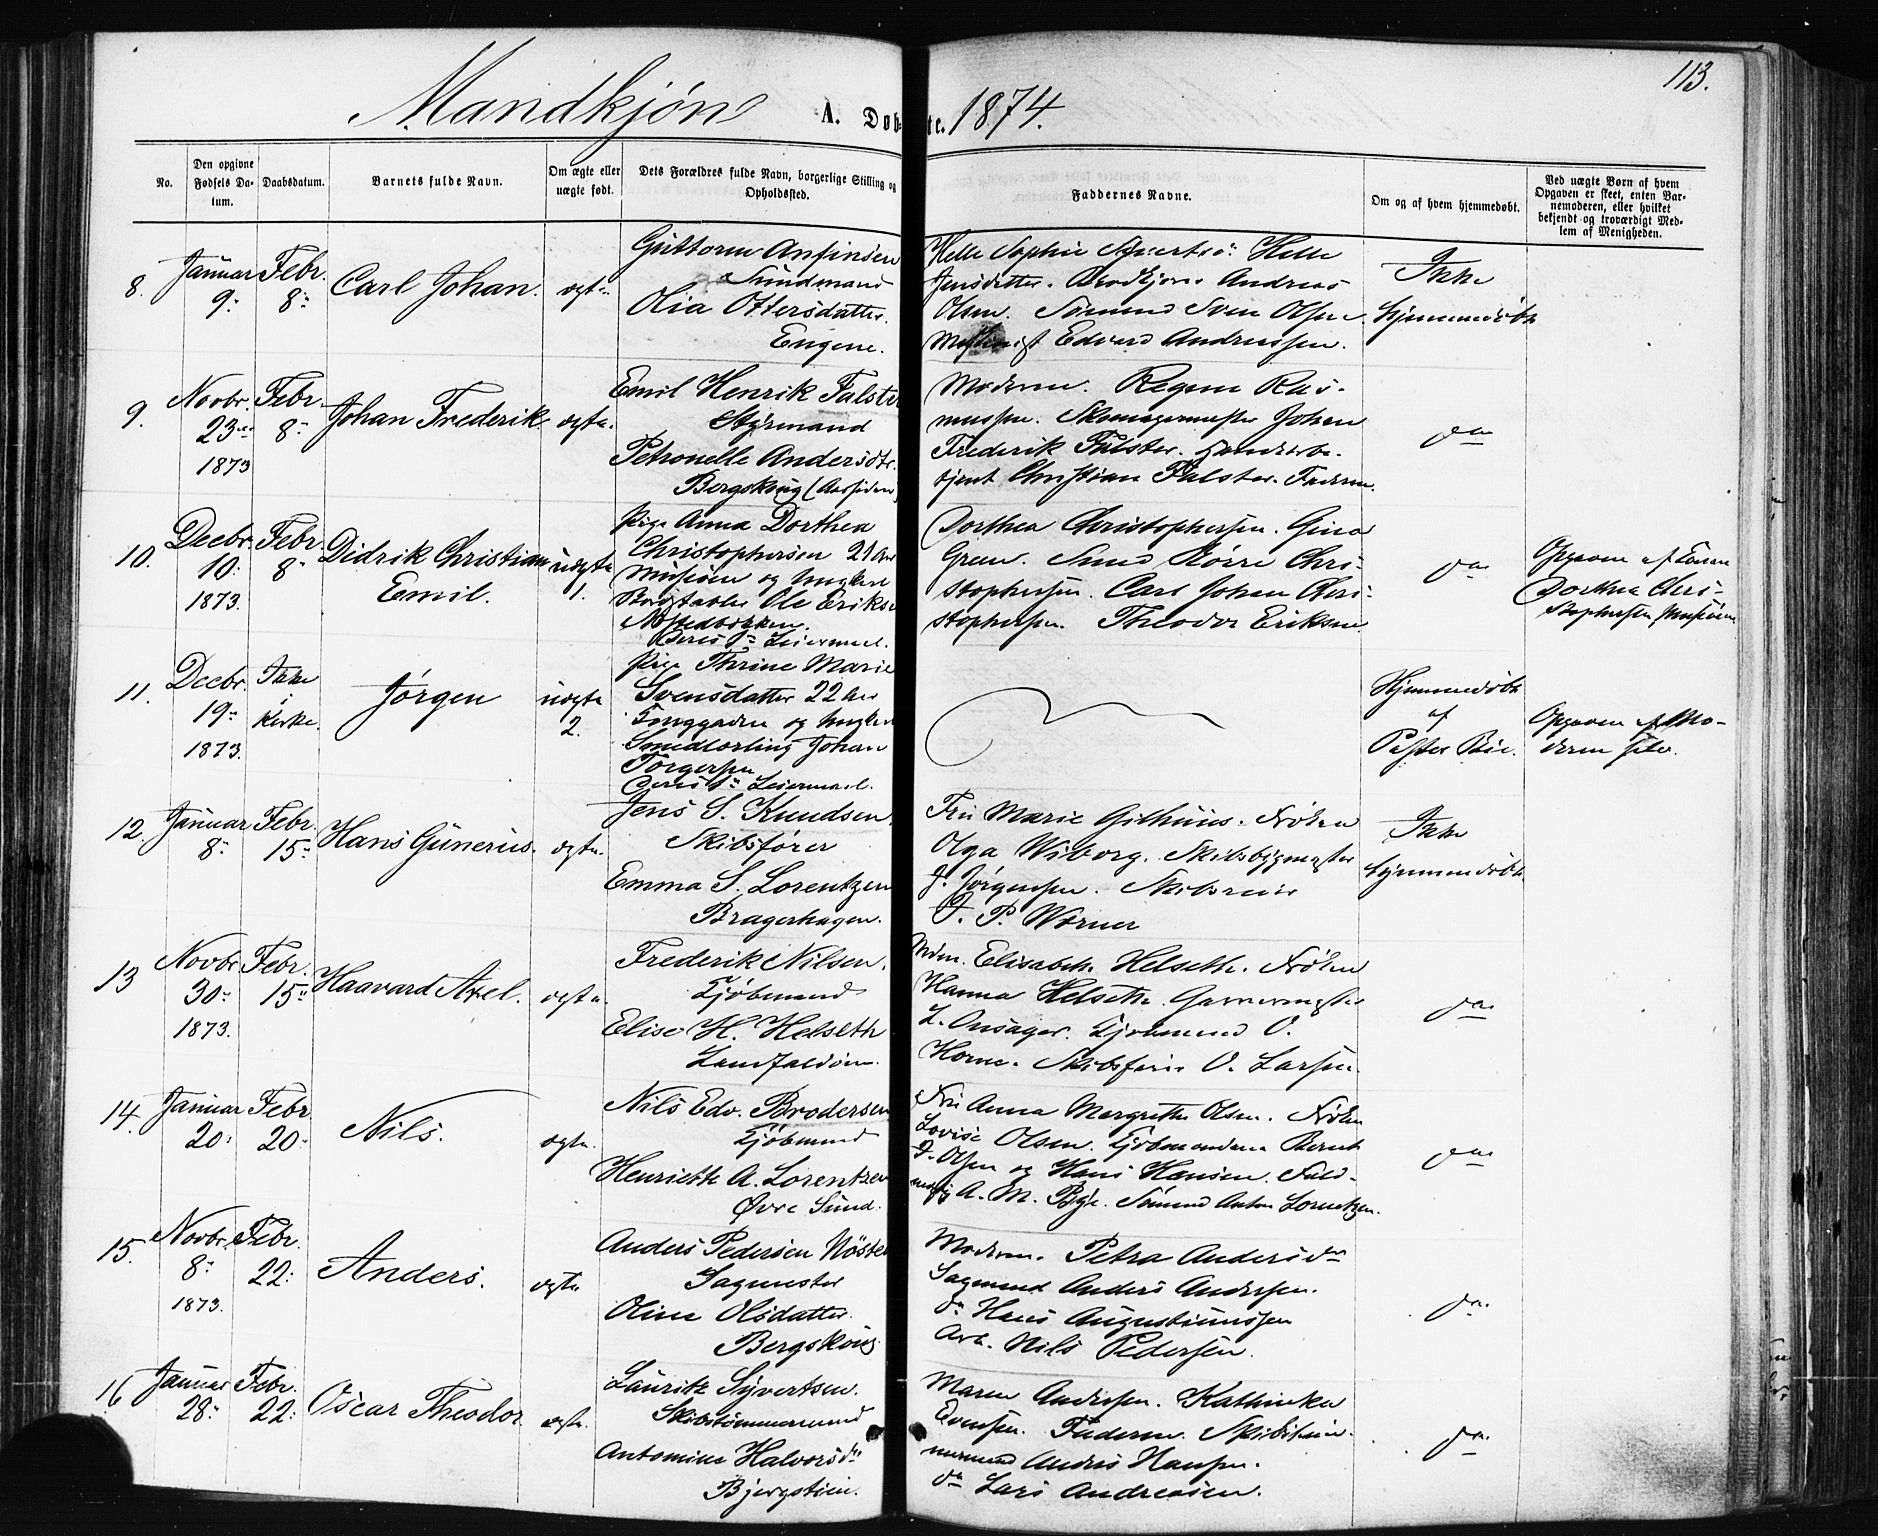 Mandkjøn A. Døbte. 1874. 113.
No.
Den opgivne Fødsels Datum.
Daabsdatum.
Barnets fulde Navn.
Om ægte eller uægte født.
Dets Forældres fulde Navn, borgerlige Stilling og Opholdssted.
Faddernes Navne.
Om og af hvem hjemmedøbt.
Ved uægte Børn af hvem Opgaven er skeet, enten Barnemoderen, eller hvilket bekjendt og troværdigt Medlem af Menigheden.
8.
Januar 9de
Febr. 8de
Carl Johan.
ægte.
Guttorm Anfinsen
Sundmand
Olia Ottersdatter.
Engene.
Helle Sophie Helle
Jensdatter. Andreas
Olsen. Sømand Sven Olsen.
Edvard Andreassen.
Ikke
hjemmedøbt
9.
Novbr. 23de
1873
Febr. 8de
Johan Frederik
ægte.
Emil Henrik Falster
Styrmand
Petronelle Andersdtr.
Bergskoug (Aassiden)
Moderen. Regine Ras-
mussen. Skomagermester Johan
Frederik Falster. Handelsbe-
tjent Christian Falster. Faderen.
do
10.
Decbr. 10de
1873.
Febr. 8de
Didrik Christian
Emil.
uægte
1.
Pige Anna Dorthea
Christophersen 21 Aar
og Ungkarl
Ole Eriksen
Nøstedbækken.
Deres 1ste Leiermaal.
Dorthea Christophersen. Gina
Green. Smed Chri-
stophersen. Carl Johan Chri-
stophersen. Theodor Eriksen
do
Opgaven af
Dorthea Chri-
stophersen
11.
Decbr. 19de
1873.
Ikke
i
Kirke.
Jørgen
uægte
2.
Pige Thrine Marie
Svensdatter 22 Aar
Tonggaden og Ungkarl
Smedlærling Johan
Torgersen
Deres 1ste Leiermaal.
Hjemmedøbt
af
Pastor Bie.
Opgaven af Mo-
deren selv.
12.
Januar 8de
Febr. 15de
Hans Gunerius.
ægte.
Jens S. Knudsen.
Skibsfører
Emma S. Lorentzen
Bragerhagen.
Fru Marie Gilhuus. Frøken
Olga Wiborg. Skibsbygmester
J. Jørgensen. Skibsreder
T. P. Wørner
Ikke
hjemmedøbt.
13
Novbr. 30de
1873.
Febr. 15de
Haavard Axel.
ægte.
Frederik Nilsen.
Kjøbmand
Elise H. Helseth
Landfaldøen.
Mdm. Elisabeth Helseth. Frøken
Hanna Helseth. Garvermester
L. Onsager. Kjøbmand O.
Horne. Skibsfører O. Larsen.
do
14.
Januar 20de
Febr. 20de
Nils.
ægte.
Nils Edv. Brodersen
Kjøbmand
Henriette A. Lorentzen
Øvre Sund.
Fru Anna Margrethe Olsen. Frøken
Lovise Olsen. Kjøbmændene Bernt
T. Olsen og Hans Hansen. Fuld-
mægtig A. M. Bye. Sømand Anton Lorentzen.
do
15.
Novbr. 8de
1873.
Febr. 22de
Anders.
ægte
Anders Pedersen Nøsted
Sagmester
Oline Olsdatter.
Bergskoug
Moderen. Petra Andersdtr
Sagmand Anders Andersen.
do Hans Augustinussen
Arb. Nils Pedersen.
do
16
Januar 28de
Febr. 22de
Oscar Theodor
ægte.
Lauritz Syvertsen.
Skibstømmermand
Antomine Halvorsdtr
Bjergstien.
Maren Andersen. Kathinka
Evensen. Faderen. Skibstøm-
mermand Anders Hansen.
do Lars Andreasen.
do